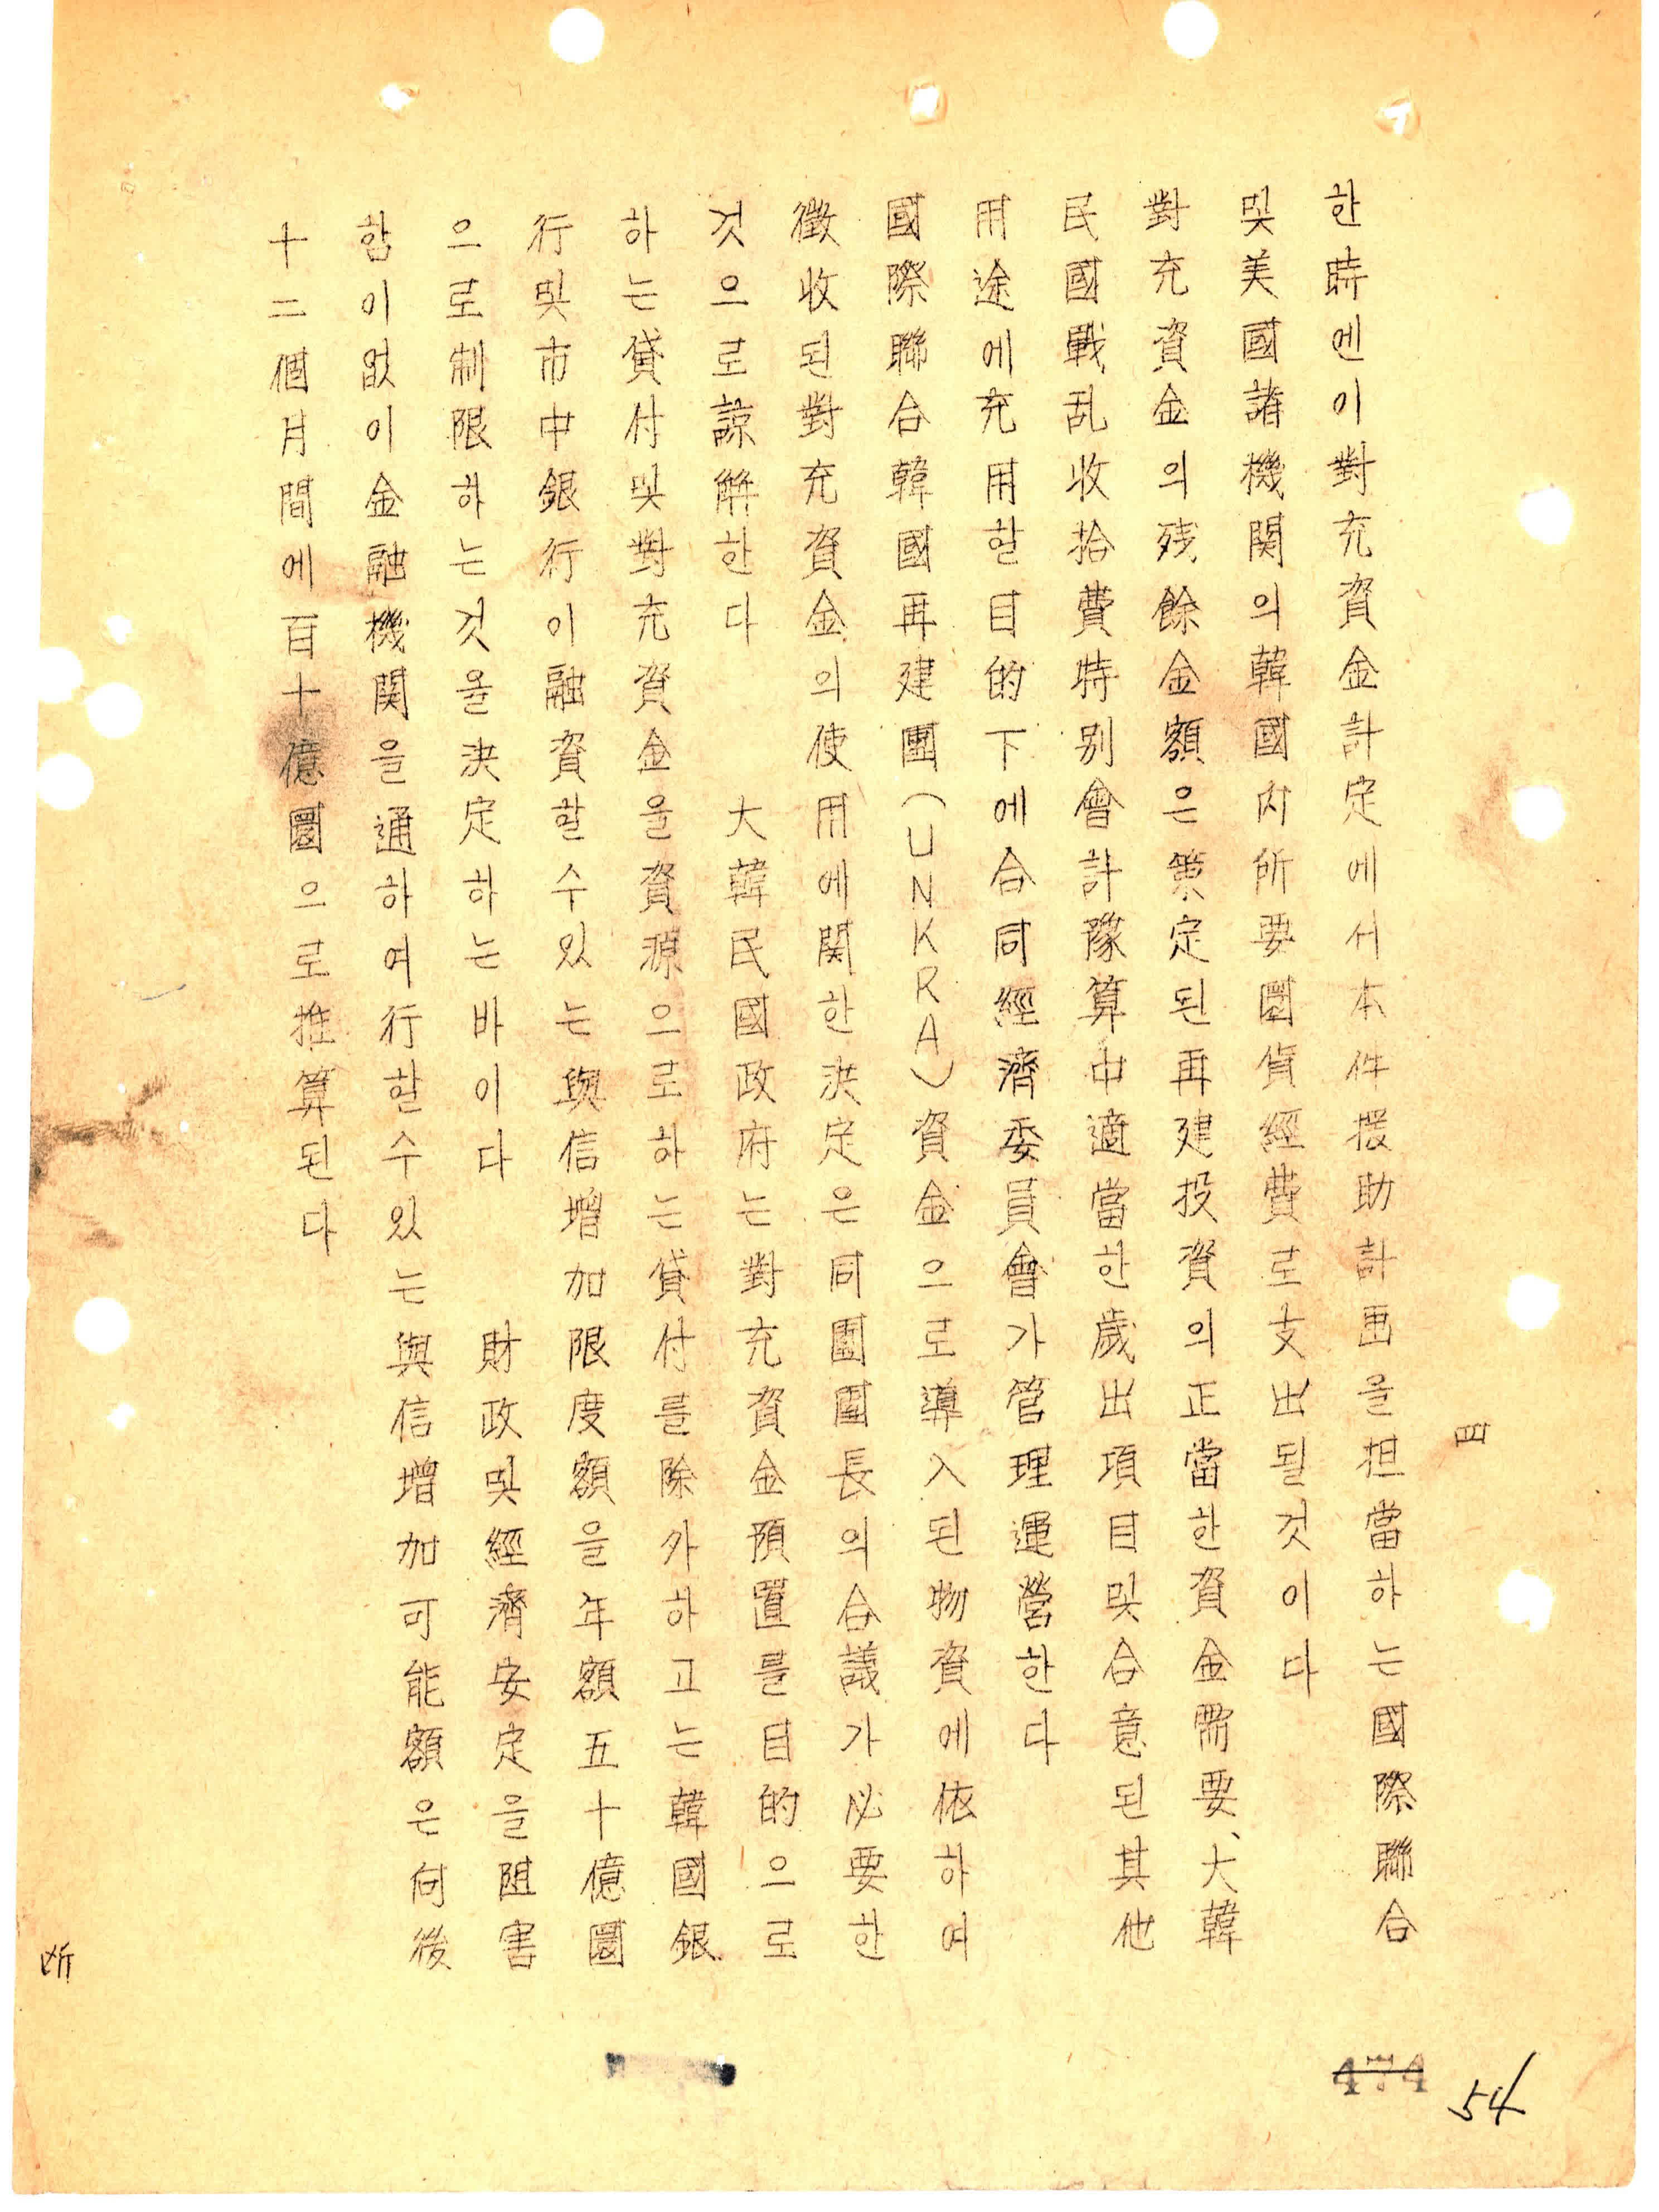 四
한時엔이對充資金計定에서本件援助計画을担當하는國際聯合
및美國諸機関의韓國內所要圜貨經費로支出될것이다
對充資金의残餘金額은策定된再建投資의正當한資金需要、大韓
民國戰乱收拾費特别會計豫算中適當한歲出項目및合意된其他
用途에充用할目的下에合同經濟委員會가管理運營한다
國際聯合韓國再建團(UNKRA)資金으로導入된物資에依하여
徵收된對充資金의使用에関한决定은同團團長의合議가必要한
것으로諒解한다 大韓民國政府는對充資金預置를目的으로
하는貸付및對充資金을資源으로하는貸付를除外하고는韓國銀
行및市中銀行이融資할수있는與信增加限度額을年額五十億圜
으로制限하는것을決定하는바이다 財政및經濟安定을阻害
함이없이金融機関을通하여行할수있는與信增加可能額은向後
十二個月間에百十億圜으로推算된다
474
54